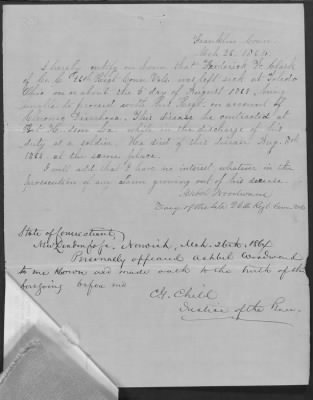 Franklin Conn.
Mch 26. 1864.
I hereby certify on honor that Frederick W. Clark
of Co. C 26th Regt Conn. Vols. was left sick at Toledo
Ohio on or about the 5 day of August 1863, being
unable to proceed with his Regt. on account of
Chronic Diarrhoea. This disease he contracted at
Port Hudson La. while in the discharge of his
duty as a soldier. He died of this disease Aug.
1863 at the same place.
I will add that I have no interest whatever in the
prosecution of any claim growing out of his decease.
Ashbel Woodward,
Surg of the late 26th Regt Conn Vols
State of Connecticut,
New London Co. ss. Norwich, Mch. 26th. 1864
Personally appeared Ashbel Woodward
to me known and made oath to the truth of the
foregoing before me
Justice of the Peace.